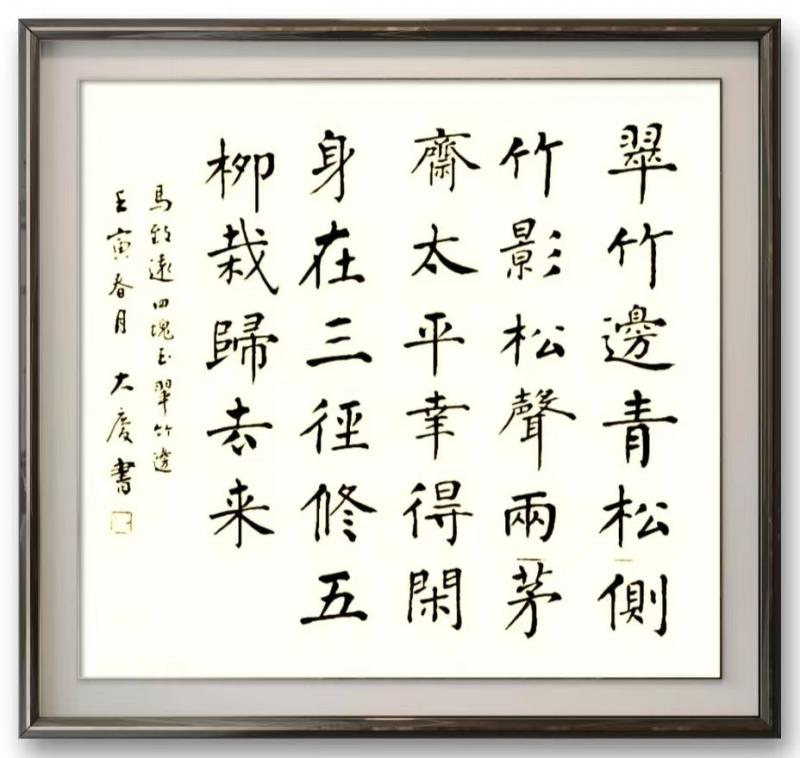 翠竹邊青松側
竹影松聲兩茅
齋太平幸得閑
身在三徑修五
柳栽歸去来
馬致遠四塊玉翠竹邊
壬寅春月大慶書